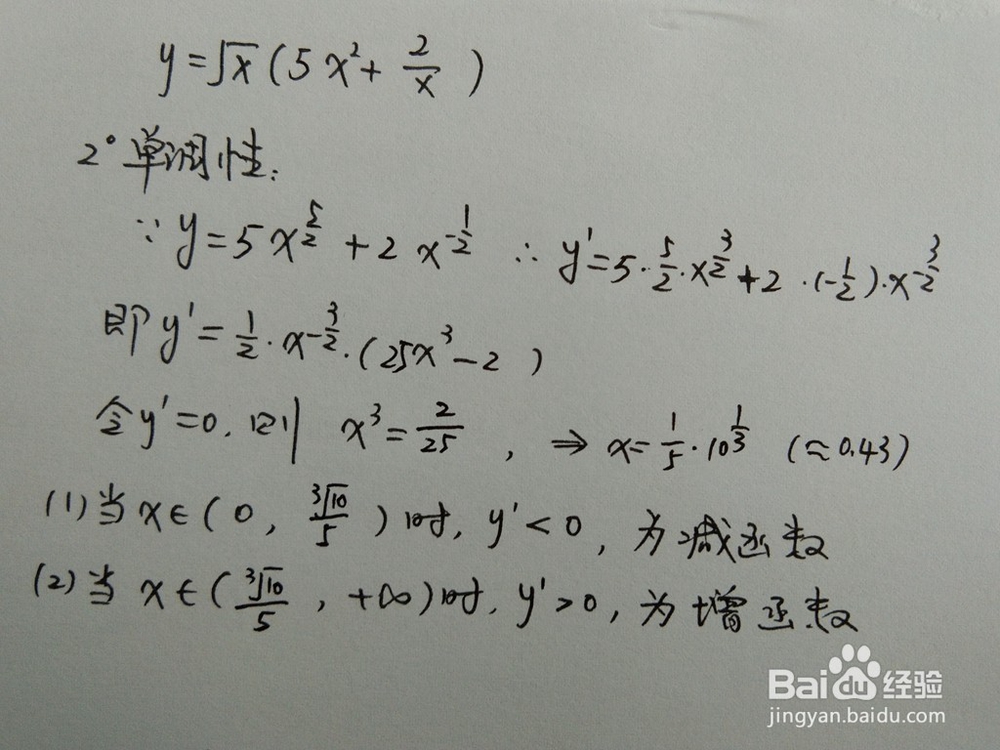 y=√x(5x²+2/x)
2°单调性:
∵y=5x^(5/2)+2x^(-1/2) ∴y'=5·5/2·x^(3/2)+2·(-1/2)·x^(-3/2)
即y'=1/2·x^(-3/2)·(25x³-2)
令y'=0,则 x³=2/25, ⇒x=1/5·10^(1/3) (≈0.43)
(1)当x∈(0,∛10/5)时,y'<0,为减函数
(2)当x∈(∛10/5,+∞)时,y'>0,为增函数
Baidu经验
jingyan.baidu.com